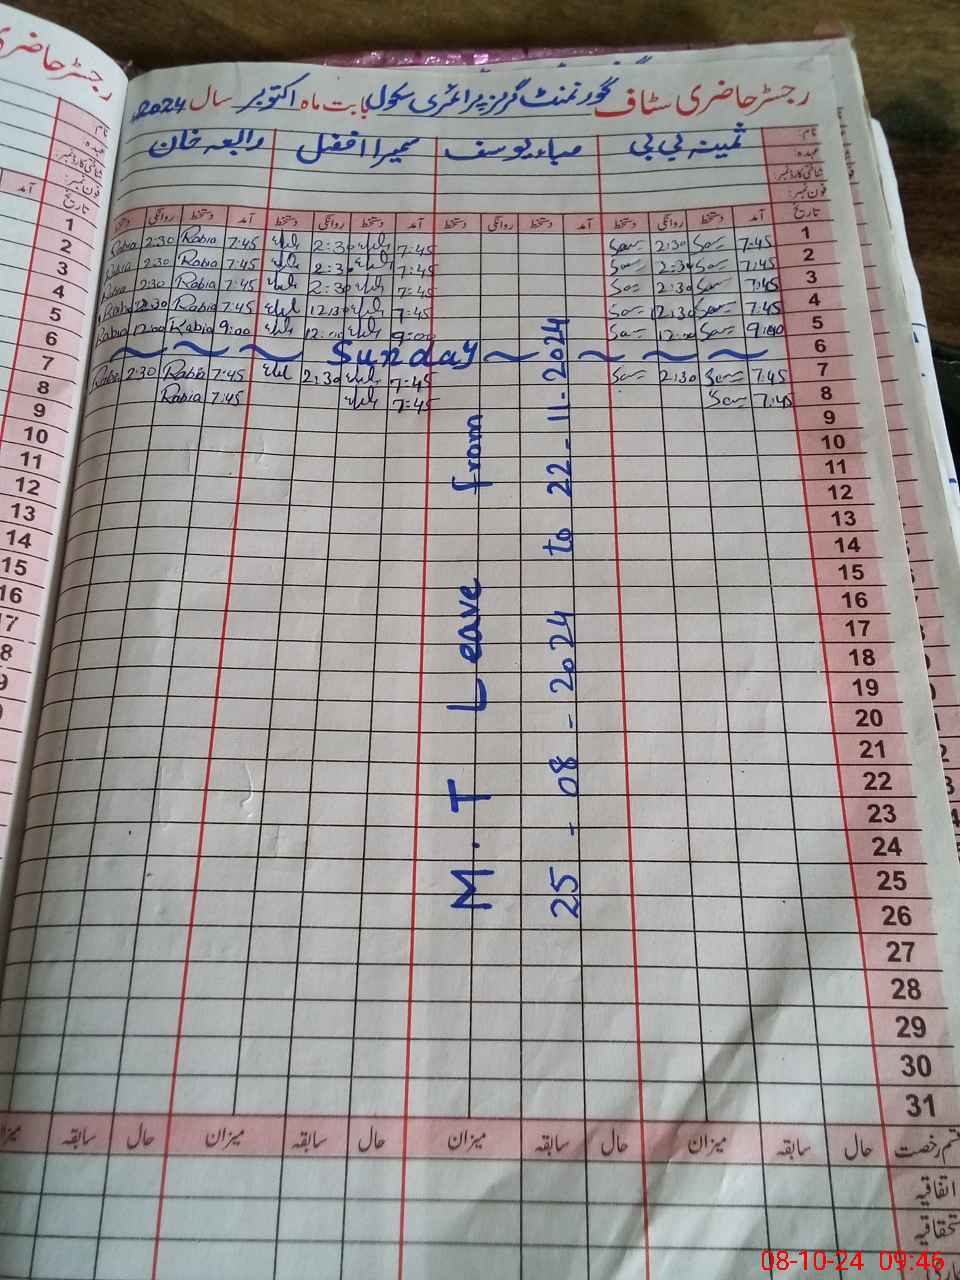 رجسٹر حاضری سٹاف گورنمنٹ گرلز پرائمری سکول بابت ماہ اکتوبر سال 2024ء
رجسٹر حاضری
نام: ثمینہ بی بی صباء یوسف سمیرا افضل رابعہ خان
عہدہ:
شناختی کارڈ نمبر:
فون نمبر:
تاریخ آمد دستخط روانگی دستخط آمد دستخط روانگی دستخط آمد دستخط روانگی دستخط آمد دستخط روانگی دستخط
1 7:45 2:30 7:45 2:30 7:45 Rabia 2:30 Rabia
2 7:45 2:30 7:45 2:30 7:45 Rabia 2:30 Rabia
3 7:45 2:30 7:45 2:30 7:45 Rabia 2:30 Rabia
4 7:45 12:30 7:45 12:30 7:45 Rabia 12:30 Rabia
5 9:00 12:00 9:00 12:00 9:00 Rabia 12:00 Rabia
6 Sunday
7 7:45 2:30 7:45 2:30 7:45 Rabia 2:30 Rabia
8 7:45 7:45 7:45 Rabia
9
10
11
12
13
14
15
16
17
18
19
20
21
22
23
24
25
26
27
28
29
30
31
M.T Leave from
25-08-2024 to 22-11-2024
قسم رخصت حال سابقہ میزان حال سابقہ میزان حال سابقہ میزان حال سابقہ میزان
اتفاقیہ
استحقاقیہ
نام:
عہدہ:
شناختی کارڈ نمبر:
فون نمبر:
تاریخ آمد
1
2
3
4
5
6
7
8
9
10
11
12
13
14
15
16
17
8
9
08-10-24 09:46